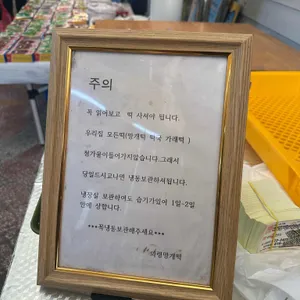 주의
꼭 읽어보고 떡 사셔야 됩니다.
우리집 모든떡(망개떡 떡국 가래떡 )
첨가물이들어가지않습니다.그래서
당일드시고나면 냉동보관하셔됩니다.
냉장실 보관하여도 습기가있어 1일-2일
안에 상합니다.
***꼭냉동보관해주세요***
의령망개떡